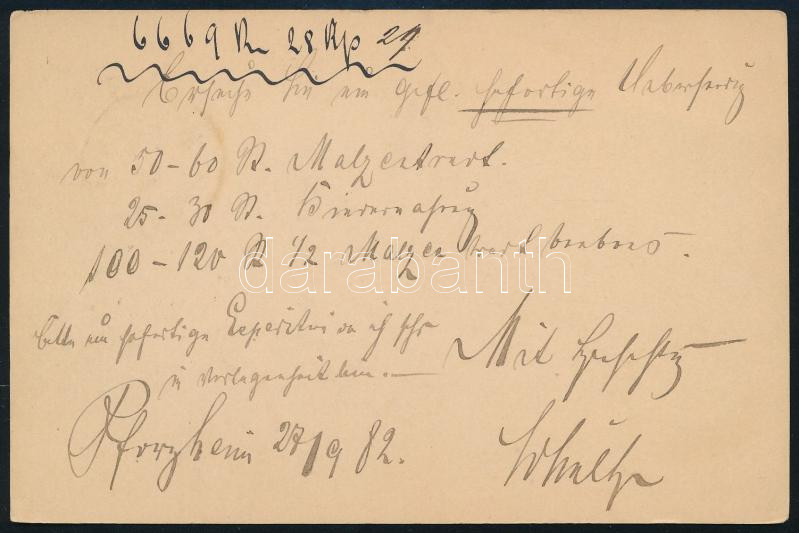 6669 Rm 28 Kp 29.
Ersuche Sie um gefl. sofortige Uebersendg
von 50-60 St. Malzextract.
25-30 St. Kindernahrung
100-120 St 1/2 Malzextractbonbons.
darabanth
bitte um sofortige Expedition da ich sehr
in Verlegenheit bin.—
Mit Hochachtg
Pforzheim 27/9 82.
Schultze